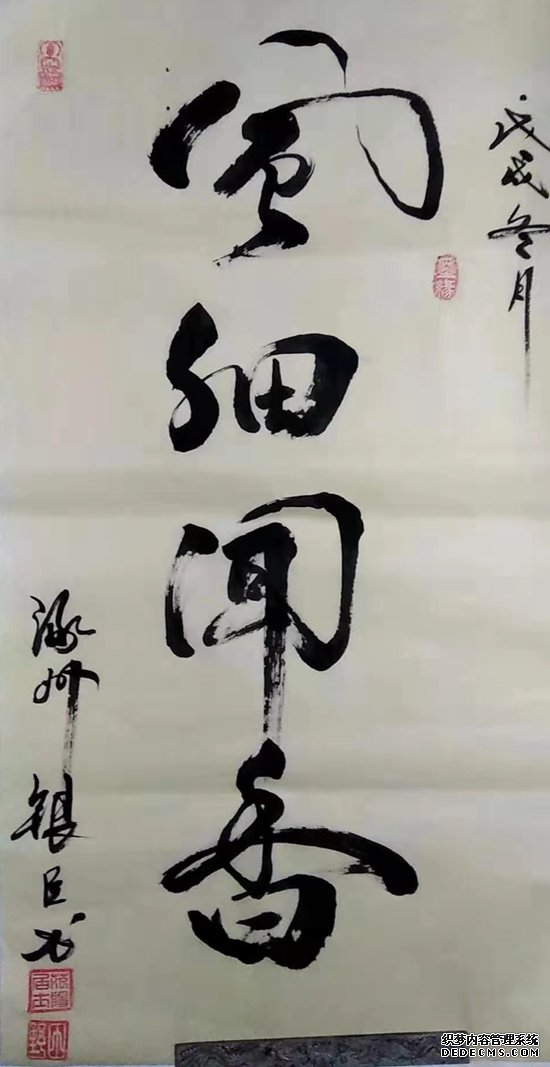 戊戌冬月
風细闻香
涿州 银臣书
织梦内容管理系统
DEDECMS.COM